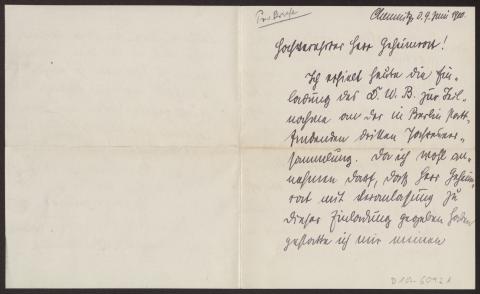 Chemnitz, d. 9. Juni 1910.
Hochverehrter Herr Geheimrat!
Ich erhielt heute die Ein-
ladung des D. W. B. zur Teil-
nahme an der in Berlin statt-
findenden dritten Jahresver-
sammlung. Da ich wohl an-
nehmen darf, daß Herr Geheim-
rat mit Veranlassung zu
dieser Einladung gegeben haben
gestatte ich mir meinen